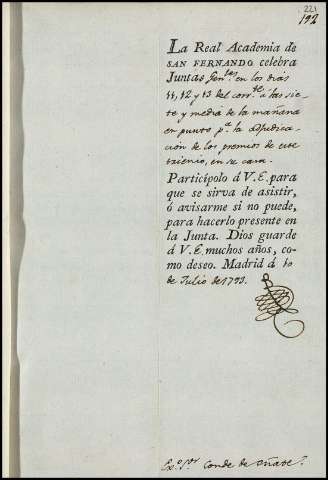 221
192
La Real Academia de
SAN FERNANDO celebra
Juntas Gen.les en los dias
11, 12 y 13 del corr.te á las sie-
te y media de la mañana
en punto p.a la adjudica-
ción de los premios de este
trienio, en su casa.
Participolo á V.E. para
que se sirva de asistir,
ó avisarme si no puede,
para hacerlo presente en
la Junta. Dios guarde
á V.E. muchos años, co-
mo deseo. Madrid á 10
de Julio de 1793.
Ex.o S.or Conde de Oñate.